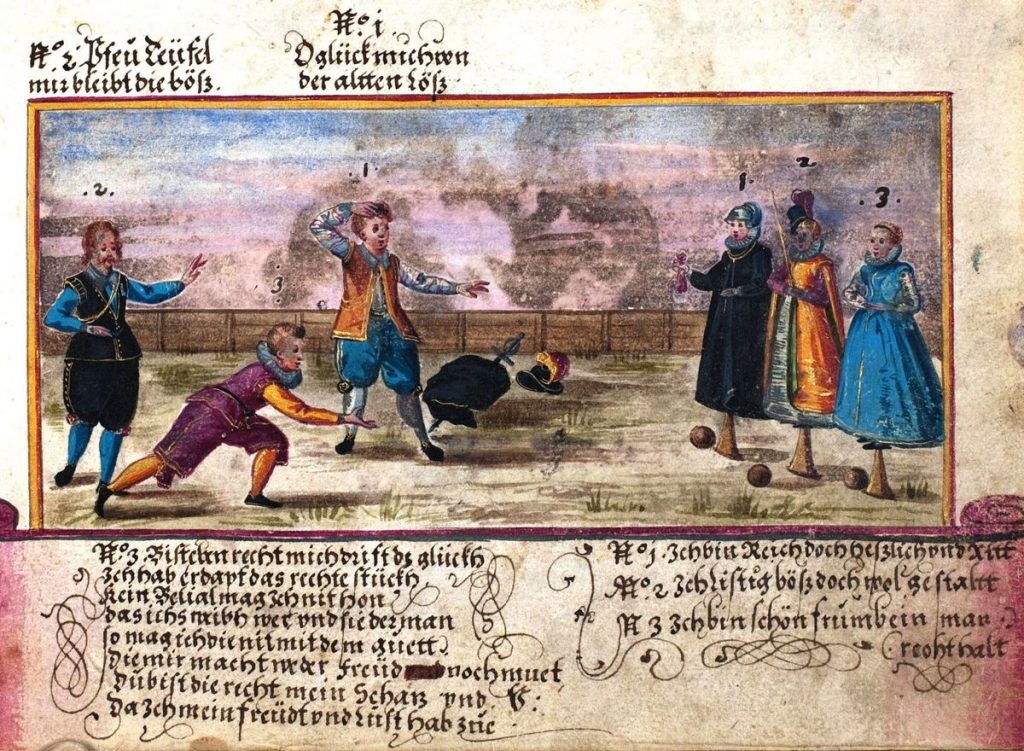 No. 2 Pfeu Teüfel
mir bleibt die böß.
No. 1
O glück mich von
der altten löß
.2.
.1.
3
1
2
3.
No 3 recht mich trift dz glückh
Ich hab erdapt das rechte stückh
Kein Belial mag Ich nit hon
das ichs weib wer und sie der man
so mag ich die nit mit dem guett
Die mir macht weder Freüd noch muet
Dü bist die recht mein Schatz und
Da Ich mein freüdt und lust hab zue
No 1. Ich bin Reich doch heßlich und Altt
No 2 Ich Listig böß doch wol gestaltt
N 3 Ich bin schön frum bein man
recht halt